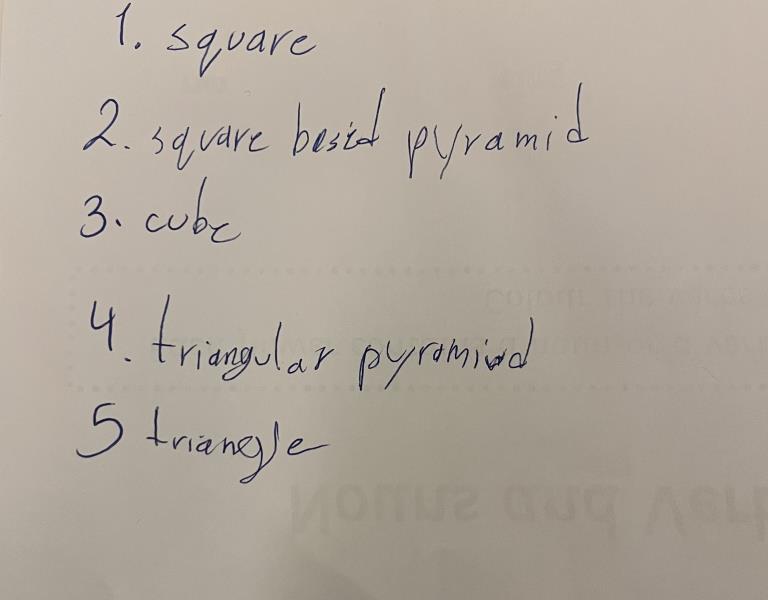 1. square
2. square based pyramid
3. cube
4. triangular pyramid
5 triangle
Nouns and Verb